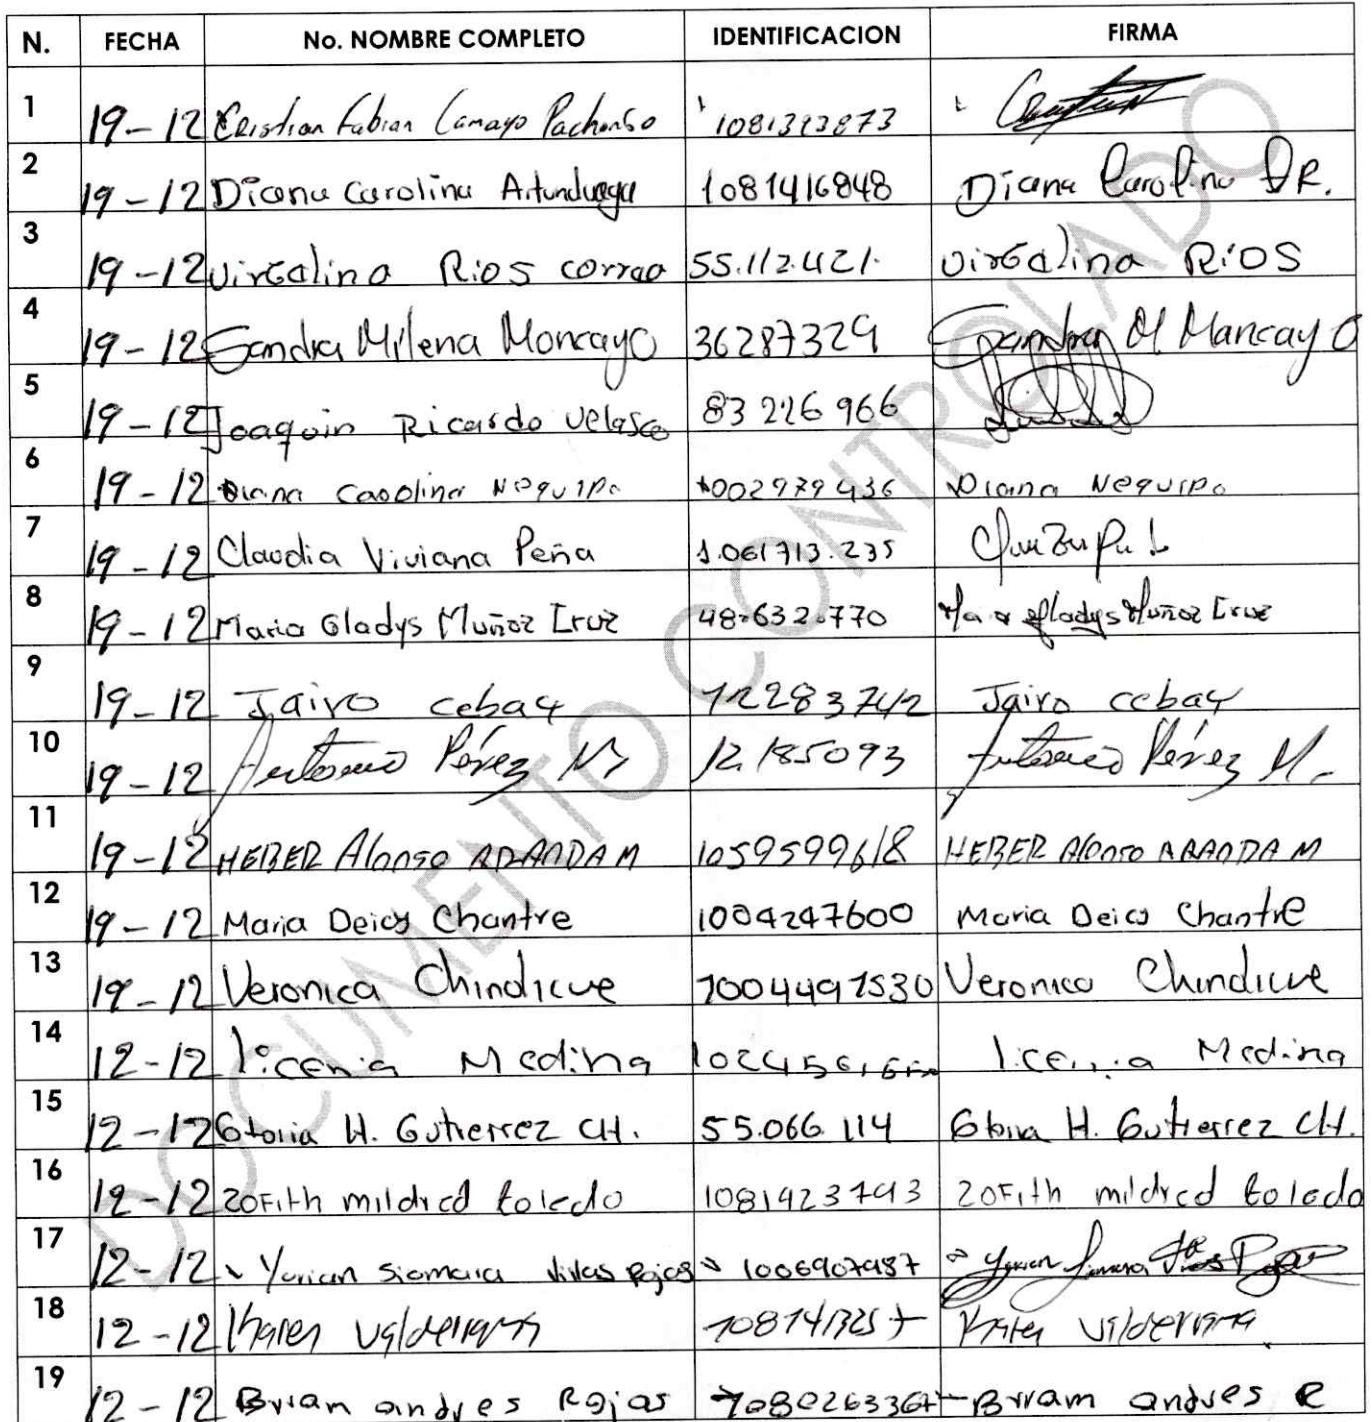 N. FECHA No. NOMBRE COMPLETO IDENTIFICACION FIRMA
1 19-12 Cristian Fabian Camayo 1081393873
2 19-12 Diana Carolina Artunduaga 1081416848 Diana Carolina A R.
3 19-12 virGelina Rios correa 55.112.421. virGelina RiOS
4 19-12 Sandra Milena Moncayo 36287329 Sandra M Moncayo O
5 19-12 Joaquin Ricardo velasco 83 226 966
6 19-12 Diana Carolina Nequipo 1002979436 Diana Nequipo
7 19-12 Claudia Viviana Peña 1.061713.235
8 19-12 Maria Gladys Muñoz Cruz 48.632.770 Maria Gladys Muñoz Cruz
9 19-12 Jairo cebay 12283742 Jairo cebay
10 19-12 Antonio Pérez M 12.185093 Antonio Pérez M.
11 19-12 HEBER Alonso ARANDA M 1059599618 HEBER Alonso ARANDA M
12 19-12 Maria Deicy Chantre 1004247600 Maria Deicy Chantre
13 19-12 Veronica Chindicue 1004491530 Veronica Chindicue
14 12-12 licenia Medina licenia Medina
15 12-12 Gloria H. Gutierrez CH. 55.066.114 Gloria H. Gutierrez CH.
16 12-12 zorith mildred toledo 1081423793 zorith mildred toledo
17 12-12 Yurian Siomara Vivas Rojas 1006907987 Yurian
18 12-12 Karen Valderrama Karen Valderrama
19 12-12 Brian andres Rojas 1080263367 Brian andres R
DOCUMENTO CONTROLADO